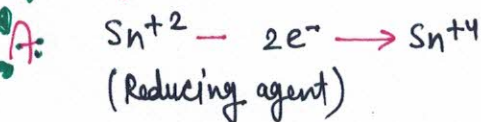 A: Sn⁺² — 2e⁻ ⟶ Sn⁺⁴
(Reducing agent)